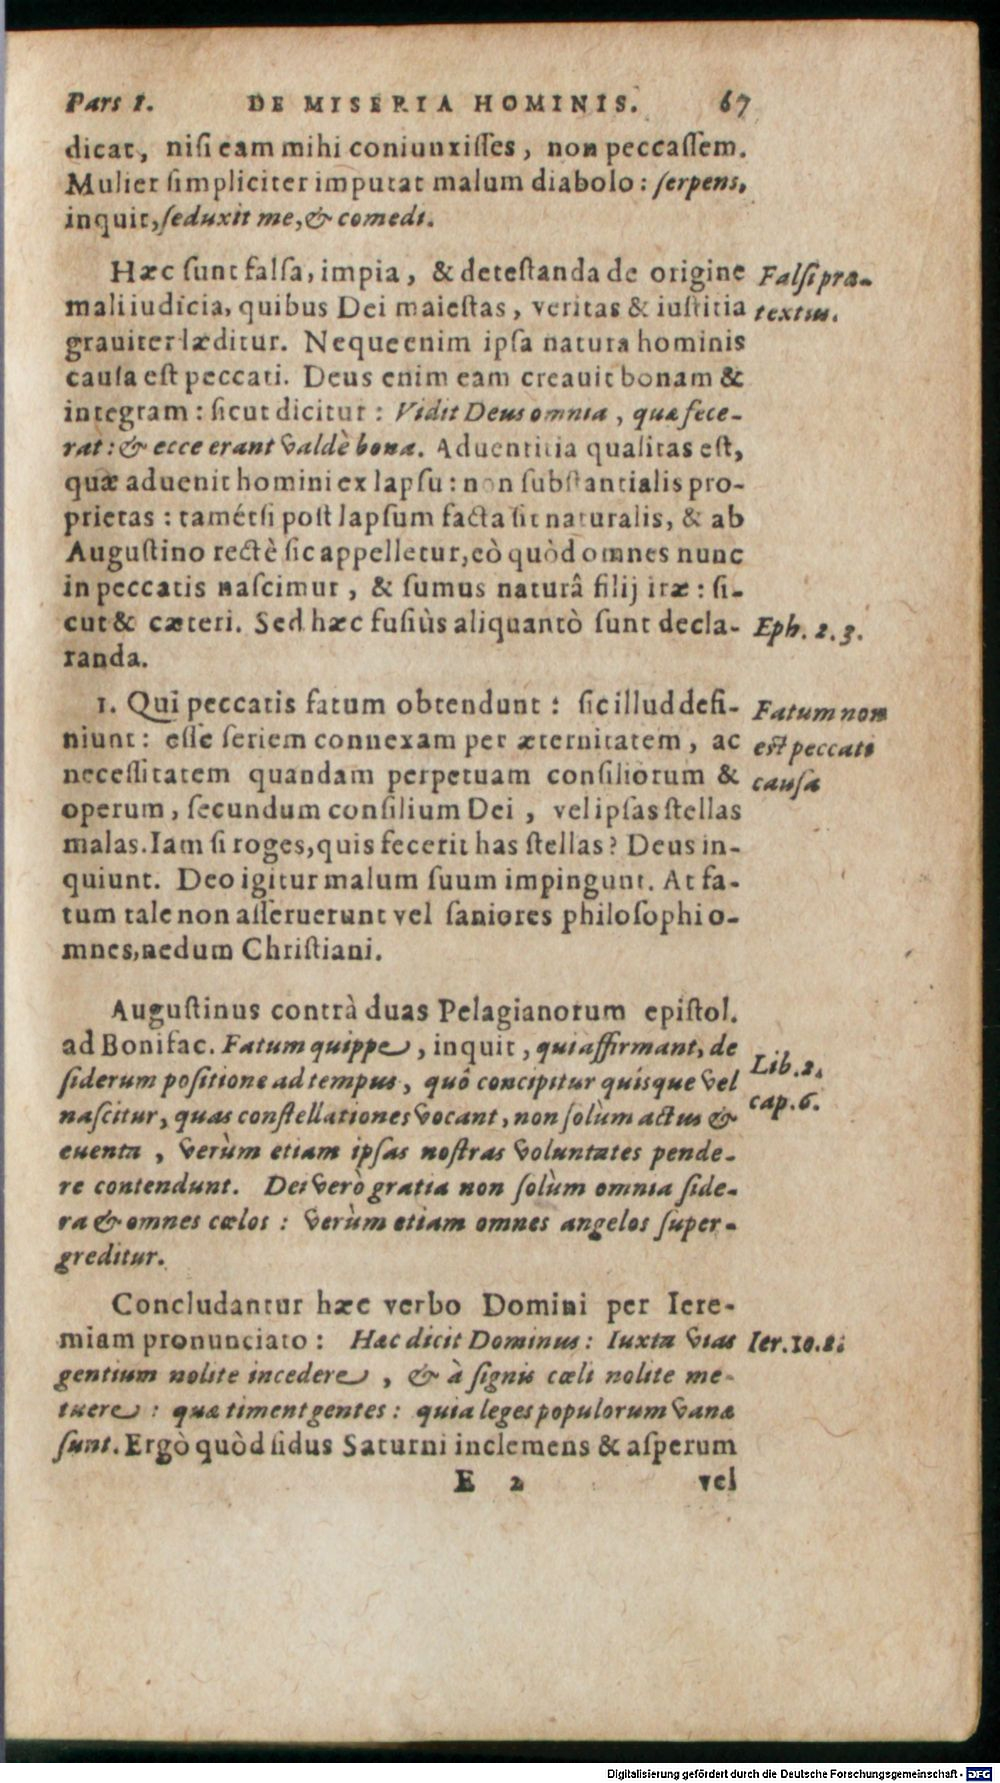 Pars 1. DE MISERIA HOMINIS. 67
dicat, niſi eam mihi coniunxiſſes, non peccaſſem.
Mulier ſimpliciter imputat malum diabolo: ſerpens,
inquit, ſeduxit me, & comedi.
Hæc ſunt falſa, impia, & deteſtanda de origine
Falſi præ-
mali iudicia, quibus Dei maieſtas, veritas & iuſtitia
textus.
grauiter læditur. Neque enim ipſa natura hominis
cauſa eſt peccati. Deus enim eam creauit bonam &
integram: ſicut dicitur: Vidit Deus omnia, quæ fece-
rat: & ecce erant valdè bona. Aduentitia qualitas eſt,
quæ aduenit homini ex lapſu: non ſubſtantialis pro-
prietas: tamétſi poſt lapſum facta ſit naturalis, & ab
Auguſtino rectè ſic appelletur, eò quòd omnes nunc
in peccatis naſcimur, & ſumus naturâ filij iræ: ſi-
cut & cæteri. Sed hæc fuſiùs aliquantò ſunt decla-
Eph. 2. 3.
randa.
1. Qui peccatis fatum obtendunt: ſic illud defi-
Fatum non
niunt: eſſe ſeriem connexam per æternitatem, ac
eſt peccati
neceſſitatem quandam perpetuam conſiliorum &
cauſa
operum, ſecundum conſilium Dei, vel ipſas ſtellas
malas. Iam ſi roges, quis fecerit has ſtellas? Deus in-
quiunt. Deo igitur malum ſuum impingunt. At fa-
tum tale non aſſeruerunt vel ſaniores philoſophi o-
mnes, nedum Chriſtiani.
Auguſtinus contrà duas Pelagianorum epiſtol.
ad Bonifac. Fatum quippe, inquit, qui affirmant, de
Lib. 2.
ſiderum poſitione ad tempus, quô concipitur quiſque vel
cap. 6.
naſcitur, quas conſtellationes vocant, non ſolùm actus &
euenta, verùm etiam ipſas noſtras voluntates pende-
re contendunt. Dei verò gratia non ſolùm omnia ſide-
ra & omnes cœlos: verùm etiam omnes angelos ſuper-
greditur.
Concludantur hæc verbo Domini per Iere-
miam pronunciato: Hæc dicit Dominus: Iuxta vias
Ier. 10. 2.
gentium nolite incedere, & à ſignis cœli nolite me-
tuere: quæ timent gentes: quia leges populorum vanæ
ſunt. Ergò quòd ſidus Saturni inclemens & aſperum
E 2 vel
Digitalisierung gefördert durch die Deutsche Forschungsgemeinschaft - DFG